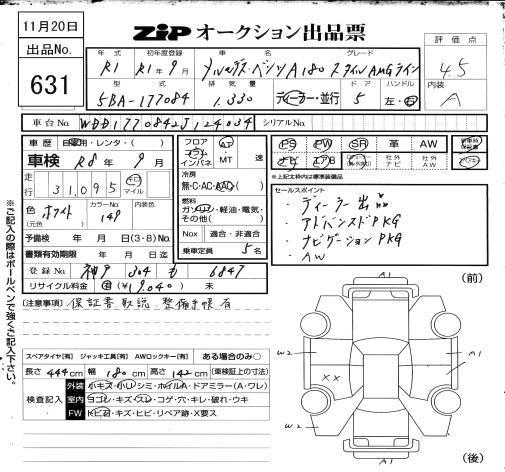 11月20日
ZIP オークション出品票
出品No.
631
年式 初年度登録 車名 グレード
R1 R1年9月 メルセデス・ベンツA180 スタイル AMGライン
評価点
4.5
型式 排気量 ドア ハンドル
5BA-177084 1.330 ディーラー・並行 5 左・右
内装
A
車台No. WDD1770842J124034 シリアルNo.
車歴 自家用・レンタ・( )
車検 R8年9月
走行 31,095 キロ マイル
色 ホワイト (元色) カラーNo. 149 内装色
予備検 年 月 日(3・8)No.
書類有効期限 年 月 日迄
登録No. 神戸 304 カ 6847
リサイクル料金 有(¥19040) 未
フロア コラム インパネ AT MT 速
冷房
無・C・AC・AAC
燃料
ガソリン・軽油・電気・その他( )
Nox 適合・非適合
乗車定員 5名
PS PW SR 革 AW
ナビ TV 社外ナビ 社外AW
※上記太枠内は標準装備品
セールスポイント
・ディーラー出品
・アドバンスドPKG
・ナビゲーションPKG
・AW
注意事項 保証書 取説 整備手帳 有
※ご記入の際はボールペンで強くご記入下さい。
スペアタイヤ[有] ジャッキ工具[有] AWロックキー[有] ある場合のみ○
長さ 444cm 幅 180cm 高さ 142cm (車検証上の寸法)
検査記入
外装 小キズ・小凹・シミ・ホイルA・ドアミラー(A・ワレ)
室内 ヨゴレ・キズ・スレ・コゲ・穴・キレ・破れ・ウキ
FW トビ石・キズ・ヒビ・リペア跡・X要ス
(前)
A1
W2
A1
XX
W2
A1
(後)